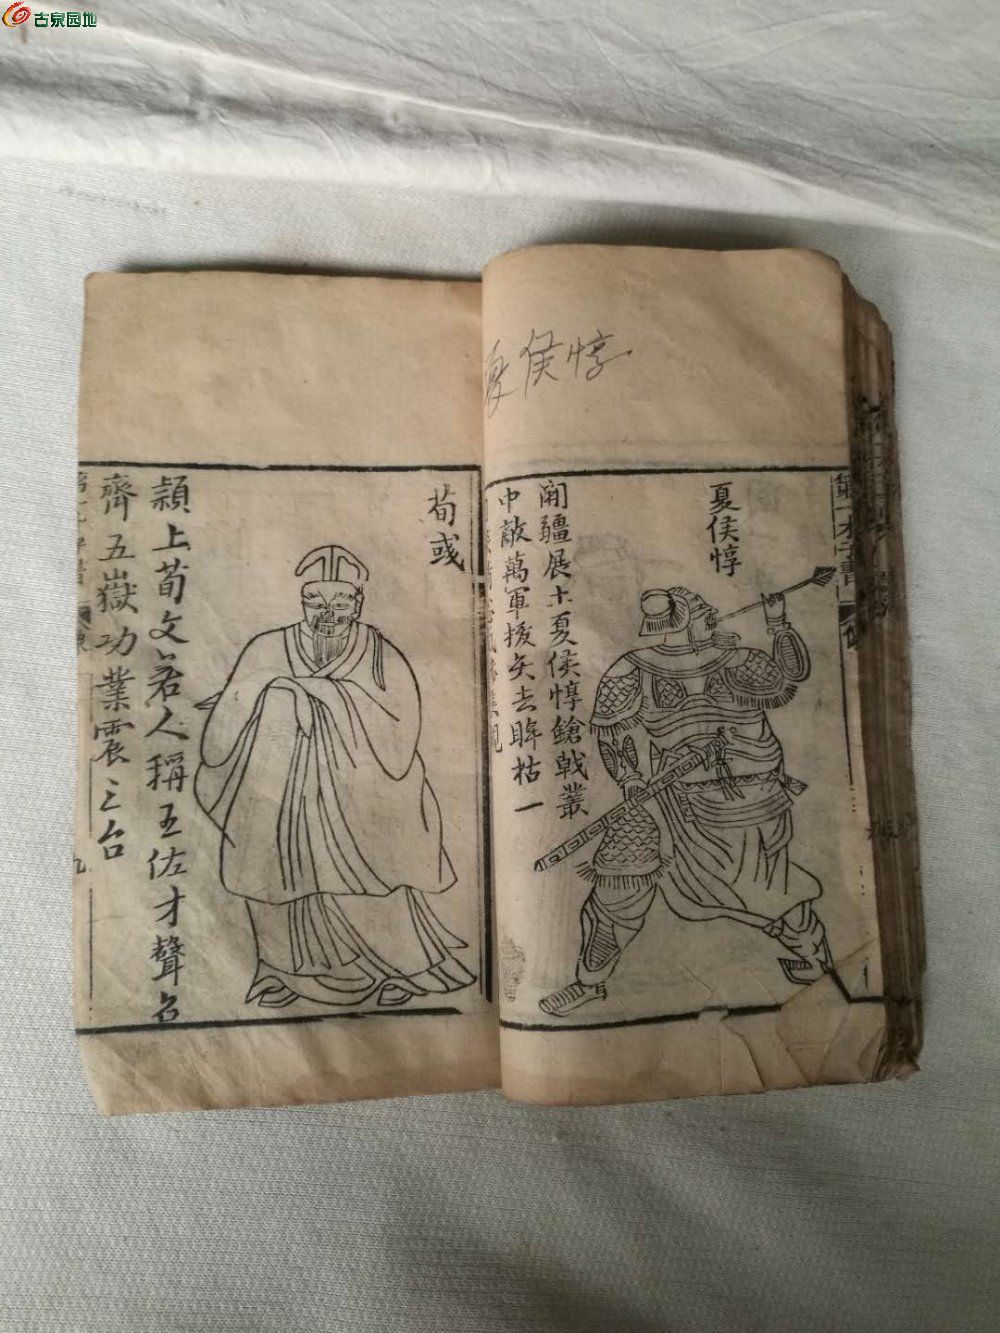 古泉园地
夏侯惇
第一才子書
夏侯惇
開疆展土夏侯惇鎗戟叢
中敵萬軍拔矢去眸枯一
荀彧
潁上荀文若人稱王佐才聲名
齊五嶽功業震三台
九